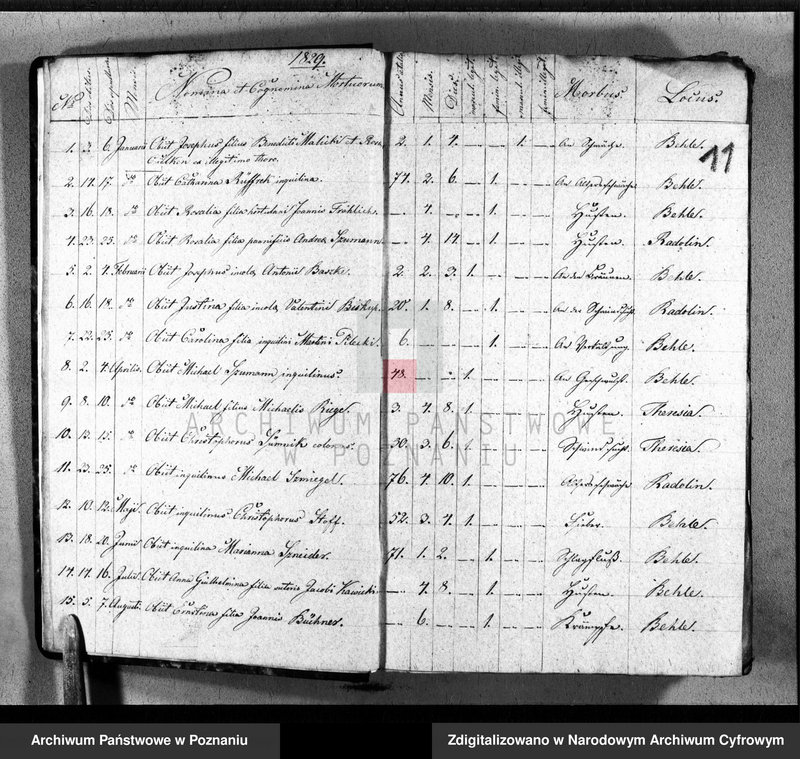 1829.
No Nomina et Cognomina Mortuorum Mensis. Dies. Morbus. Locus.
11
1. 6. Januarii Obiit Josephus filius Benedicti Malicki et Rosa 2. 1. 4. 1. Behle.
ex illegitimo thoro.
2. 14. 17. do Obiit Catharina inquilina. 77. 2. 6. 1. Altersschwäche Behle.
3. 16. 18. do Obiit Rosalia filia Joannis Fröhlich. 4. 1. Husten. Behle.
4. 23. 25. do Obiit Rosalia filia pannificis Andrea Szumann 4. 14. 1. Husten. Radolin.
5. 2. 4. Februarii Obiit Josephus Antonii 2. 2. 3. 1. Behle.
6. 16. 18. do Obiit Justina filia Valentini 20. 1. 8. 1. Radolin.
7. 23. 25. do Obiit Carolina filia inquilini Martini Pilecki. 6. 1. Behle.
8. 2. 4. Aprilis Obiit Michael Szumann inquilinus. 48. 1. Behle.
9. 8. 10. do Obiit Michael filius Michaelis Riegel. 3. 4. 8. 1. Husten. Theresia.
10. 13. 15. do Obiit Christophorus colonus. 30. 3. 6. 1. Theresia.
11. 23. 25. do Obiit inquilinus Michael Szmiegel. 76. 4. 10. 1. Altersschwäche Radolin.
12. 10. 12. Maji. Obiit inquilinus Christophorus Stoff. 52. 3. 4. 1. Fieber. Behle.
13. 18. 20. Junii Obiit inquilina Marianna Szneider. 71. 1. 2. 1. Schlagfluß. Behle.
14. 14. 16. Julii. Obiit Anna Guilhelmina filia Jacobi 4. 8. 1. Husten. Behle.
15. 5. 7. Augusti Obiit filia Joannis Büchner. 6. 1. Krämpfe. Behle.
ARCHIWUM PAŃSTWOWE
W POZNANIU
Archiwum Państwowe w Poznaniu
Zdigitalizowano w Narodowym Archiwum Cyfrowym